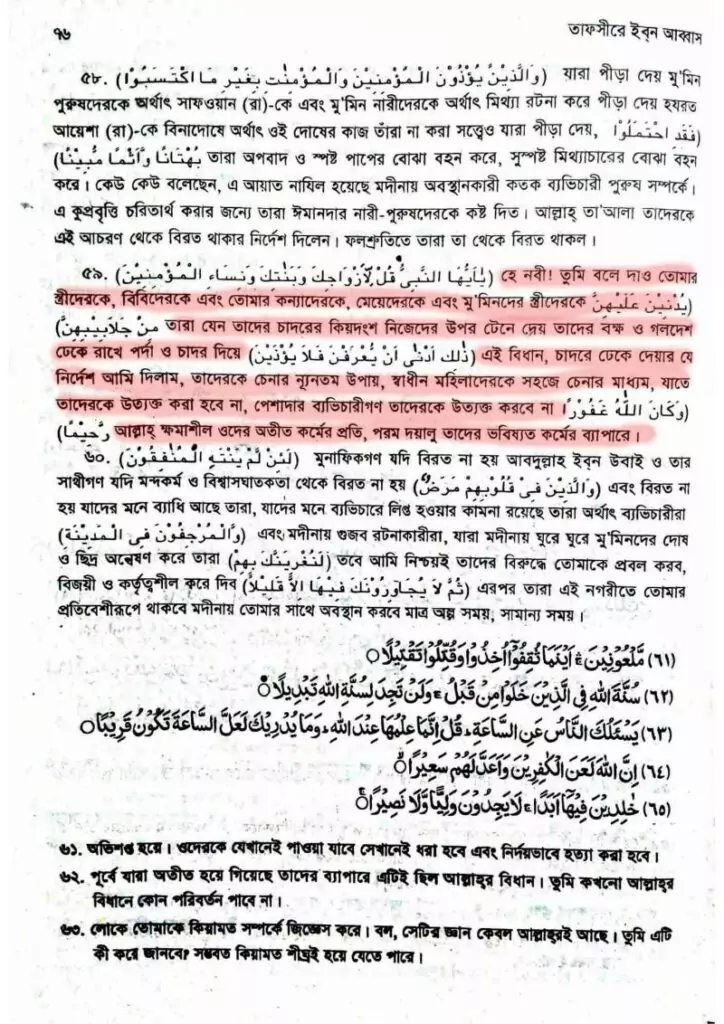 ৭৬
তাফসীরে ইব্‌ন আব্বাস
৫৮. (وَالَّذِيْنَ يُؤْذُوْنَ الْمُؤْمِنِيْنَ وَالْمُؤْمِنٰتِ بِغَيْرِ مَا اكْتَسَبُوْا) যারা পীড়া দেয় মু'মিন
পুরুষদেরকে অর্থাৎ সাফওয়ান (রা)-কে এবং মু'মিন নারীদেরকে অর্থাৎ মিথ্যা রটনা করে পীড়া দেয় হযরত
আয়েশা (রা)-কে বিনাদোষে অর্থাৎ ওই দোষের কাজ তাঁরা না করা সত্ত্বেও যারা পীড়া দেয়, (فَقَدِ احْتَمَلُوْا
بُهْتَانًا وَّاِثْمًا مُّبِيْنًا) তারা অপবাদ ও স্পষ্ট পাপের বোঝা বহন করে, সুস্পষ্ট মিথ্যাচারের বোঝা বহন
করে। কেউ কেউ বলেছেন, এ আয়াত নাযিল হয়েছে মদীনায় অবস্থানকারী কতক ব্যভিচারী পুরুষ সম্পর্কে।
এ কুপ্রবৃত্তি চরিতার্থ করার জন্যে তারা ঈমানদার নারী-পুরুষদেরকে কষ্ট দিত। আল্লাহ্ তা'আলা তাদেরকে
এই আচরণ থেকে বিরত থাকার নির্দেশ দিলেন। ফলশ্রুতিতে তারা তা থেকে বিরত থাকল।
৫৯. (يٰاَيُّهَا النَّبِىُّ قُلْ لِاَزْوَاجِكَ وَبَنٰتِكَ وَنِسَاءِ الْمُؤْمِنِيْنَ) হে নবী! তুমি বলে দাও তোমার
স্ত্রীদেরকে, বিবিদেরকে এবং তোমার কন্যাদেরকে, মেয়েদেরকে এবং মু'মিনদের স্ত্রীদেরকে (يُدْنِيْنَ عَلَيْهِنَّ
مِنْ جَلَابِيْبِهِنَّ) তারা যেন তাদের চাদরের কিয়দংশ নিজেদের উপর টেনে দেয় তাদের বক্ষ ও গলদেশ
ঢেকে রাখে পর্দা ও চাদর দিয়ে (ذٰلِكَ اَدْنٰى اَنْ يُّعْرَفْنَ فَلاَ يُؤْذَيْنَ) এই বিধান, চাদরে ঢেকে দেয়ার যে
নির্দেশ আমি দিলাম, তাদেরকে চেনার ন্যূনতম উপায়, স্বাধীন মহিলাদেরকে সহজে চেনার মাধ্যম, যাতে
তাদেরকে উত্যক্ত করা হবে না, পেশাদার ব্যভিচারীগণ তাদেরকে উত্যক্ত করবে না (وَكَانَ اللّٰهُ غَفُوْرًا
رَّحِيْمًا) আল্লাহ্ ক্ষমাশীল ওদের অতীত কর্মের প্রতি, পরম দয়ালু তাদের ভবিষ্যত কর্মের ব্যাপারে।
৬০. (لَئِنْ لَّمْ يَنْتَهِ الْمُنٰفِقُوْنَ) মুনাফিকগণ যদি বিরত না হয় আবদুল্লাহ্ ইব্‌ন উবাই ও তার
সাথীগণ যদি মন্দকর্ম ও বিশ্বাসঘাতকতা থেকে বিরত না হয় (وَالَّذِيْنَ فِىْ قُلُوْبِهِمْ مَرَضٌ) এবং বিরত না
হয় যাদের মনে ব্যাধি আছে তারা, যাদের মনে ব্যভিচারে লিপ্ত হওয়ার কামনা রয়েছে তারা অর্থাৎ ব্যভিচারীরা
(وَّالْمُرْجِفُوْنَ فِى الْمَدِيْنَةِ) এবং মদীনায় গুজব রটনাকারীরা, যারা মদীনায় ঘুরে ঘুরে মু'মিনদের দোষ
ও ছিদ্র অন্বেষণ করে তারা (لَنُغْرِيَنَّكَ بِهِمْ) তবে আমি নিশ্চয়ই তাদের বিরুদ্ধে তোমাকে প্রবল করব,
বিজয়ী ও কর্তৃত্বশীল করে দিব (ثُمَّ لاَ يُجَاوِرُوْنَكَ فِيْهَا اِلاَّ قَلِيْلاً) এরপর তারা এই নগরীতে তোমার
প্রতিবেশীরূপে থাকবে মদীনায় তোমার সাথে অবস্থান করবে মাত্র অল্প সময়, সামান্য সময়।
(٦١) مَّلْعُوْنِيْنَ ۛ اَيْنَمَا ثُقِفُوْٓا اُخِذُوْا وَقُتِّلُوْا تَقْتِيْلًا ○
(٦٢) سُنَّةَ اللّٰهِ فِى الَّذِيْنَ خَلَوْا مِنْ قَبْلُ ۚ وَلَنْ تَجِدَ لِسُنَّةِ اللّٰهِ تَبْدِيْلًا ○
(٦٣) يَسْـَٔلُكَ النَّاسُ عَنِ السَّاعَةِ ؕ قُلْ اِنَّمَا عِلْمُهَا عِنْدَ اللّٰهِ ؕ وَمَا يُدْرِيْكَ لَعَلَّ السَّاعَةَ تَكُوْنُ قَرِيْبًا ○
(٦٤) اِنَّ اللّٰهَ لَعَنَ الْكٰفِرِيْنَ وَاَعَدَّ لَهُمْ سَعِيْرًا ○
(٦٥) خٰلِدِيْنَ فِيْهَآ اَبَدًا ۚ لَا يَجِدُوْنَ وَلِيًّا وَّلَا نَصِيْرًا ○
৬১. অভিশপ্ত হয়ে। ওদেরকে যেখানেই পাওয়া যাবে সেখানেই ধরা হবে এবং নির্দয়ভাবে হত্যা করা হবে।
৬২. পূর্বে যারা অতীত হয়ে গিয়েছে তাদের ব্যাপারে এটিই ছিল আল্লাহ্‌র বিধান। তুমি কখনো আল্লাহ্‌র
বিধানে কোন পরিবর্তন পাবে না।
৬৩. লোকে তোমাকে কিয়ামত সম্পর্কে জিজ্ঞেস করে। বল, সেটির জ্ঞান কেবল আল্লাহ্‌রই আছে। তুমি এটি
কী করে জানবে? সম্ভবত কিয়ামত শীঘ্রই হয়ে যেতে পারে।